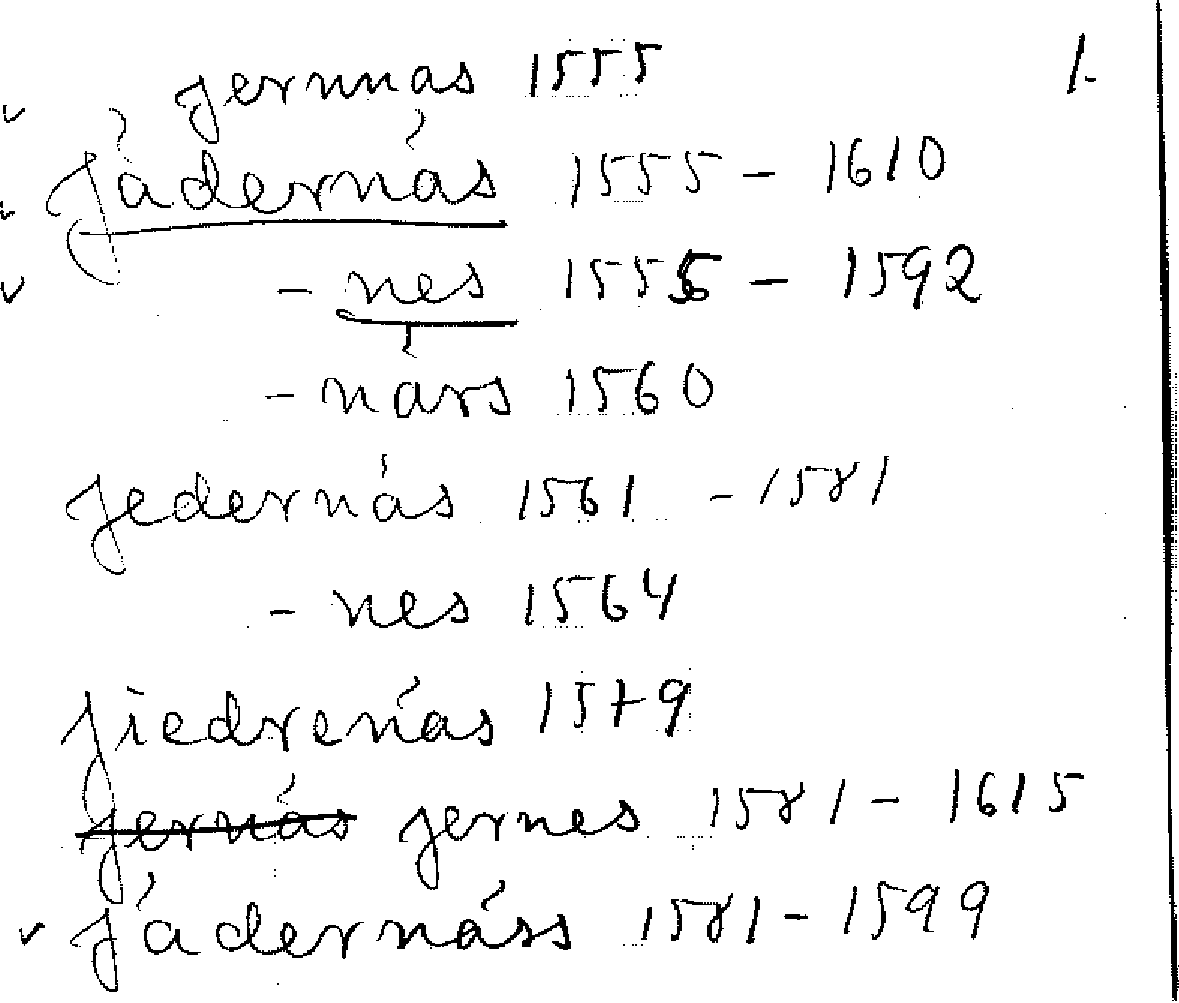 jernnas 1555 1.
Jådernås 1555 - 1610
- nes 1556 - 1592
- nårs 1560
Jedernås 1561 - 1581
- nes 1564
Jiedrenås 1579
jernås jernes 1581 - 1615
Jådernåss 1581 - 1599